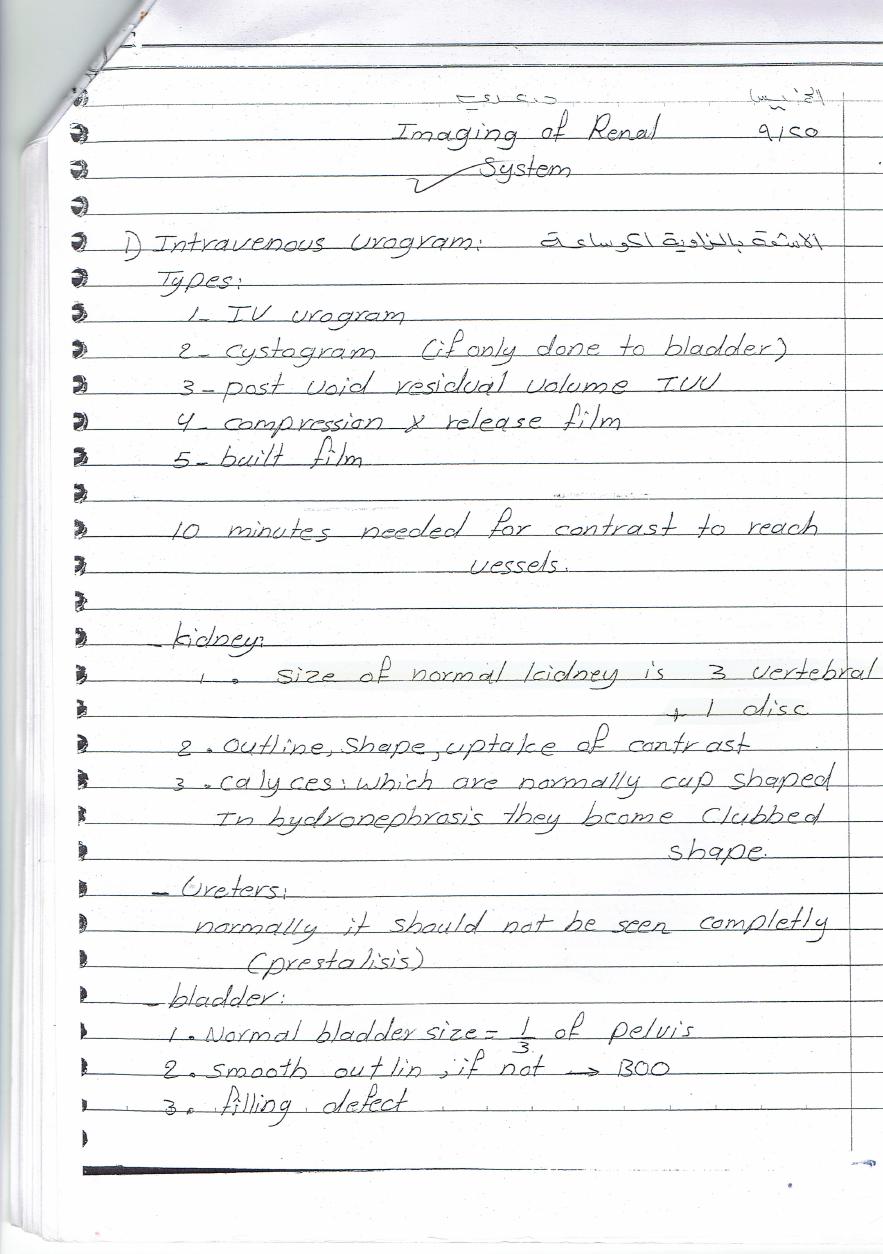 د. عدي الخميس
Imaging of Renal ٩/٢٥
System
1) Intravenous urogram: الاشعة بالزاوية
Types:
1- IV urogram
2- cystogram (if only done to bladder)
3- post void residual volume IVU
4- compression & release film
5- built film
10 minutes needed for contrast to reach
vessels.
- kidney:
1. size of normal kidney is 3 vertebral
+ 1 disc
2. outline, shape, uptake of contrast
3. calyces: which are normally cup shaped
In hydronephrosis they bcome clubbed
shape.
- Ureters:
normally it should not be seen completly
(prestalisis)
- bladder:
1. Normal bladder size = 1/3 of pelvis
2. smooth outlin, if not → BOO
3. filling defect